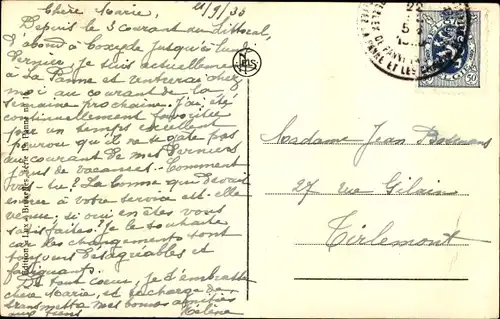 Chère Marie, 21/9/30
Depuis le 3 courant au littoral,
d'abord à Coxyde jusqu'à lundi
dernier, je suis actuellement
à La Panne et rentrerai chez
moi au courant de la
semaine prochaine. J'ai été
continuellement favorisée
par un temps excellent
pourvu qu'il ne se gâte pas
au courant de mes derniers
jours de vacances. Comment
vas-tu? La bonne qui devait
entrer à votre service est-elle
venue, si oui en êtes vous
satisfaites? Je le souhaite
car les changements sont
toujours désagréables et
fatiguants.
De tout coeur, je t'embrasse
chère Marie, et te charge de
transmettre mes bonnes amitiés
aux tiens Hélène
Madame Jean
27 rue Gilain
Tirlemont
LA PANNE ET LES
50